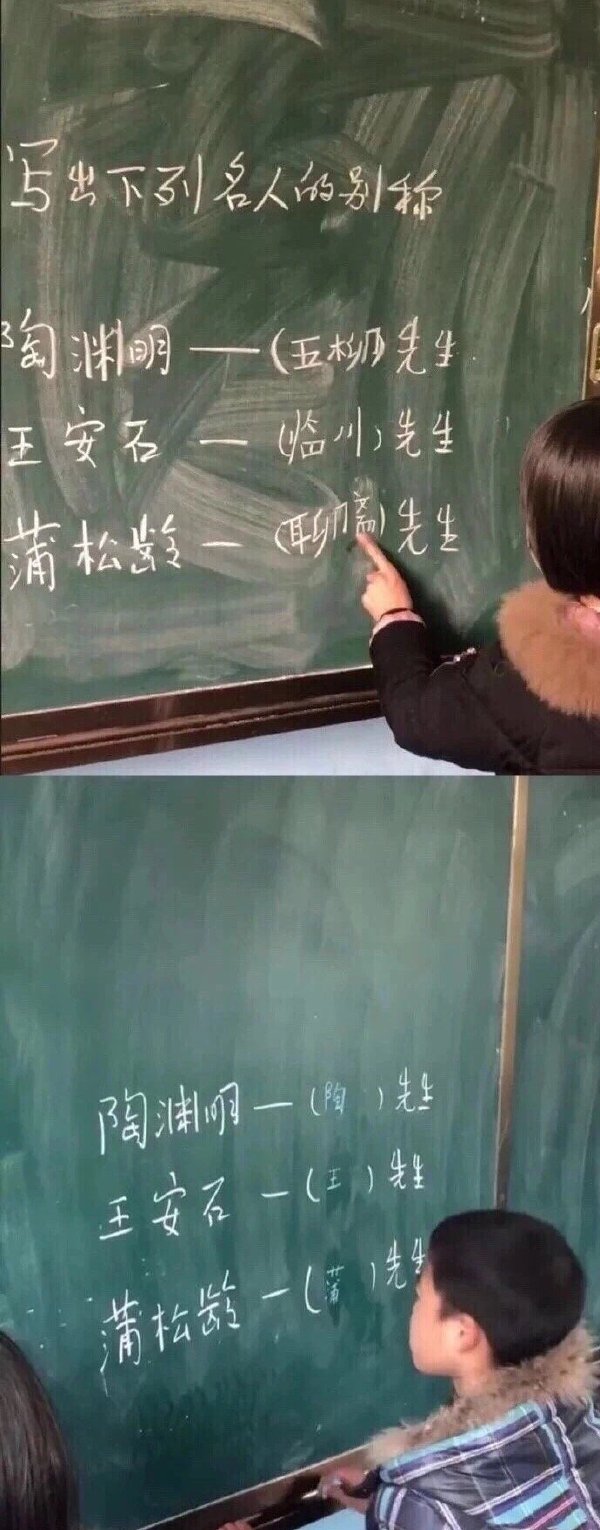 写出下列名人的别称
陶渊明——(五柳)先生
王安石—(临川)先生
蒲松龄—(聊斋)先生
陶渊明—(陶)先生
王安石—(王)先生
蒲松龄—(蒲)先生